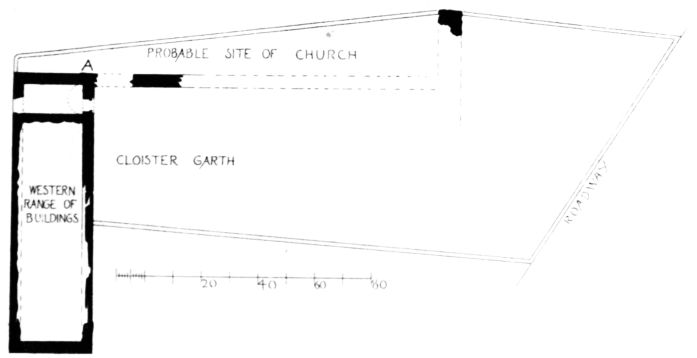 PROBABLE SITE OF CHURCH
A
CLOISTER GARTH
WESTERN
RANGE OF
BUILDINGS
ROADWAY
20 40 60 80